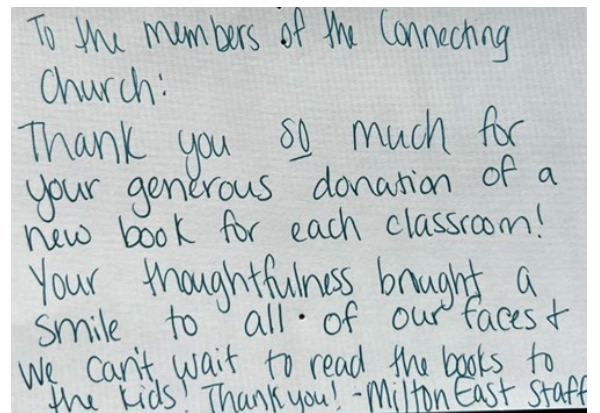 To the members of the Connecting
Church:
Thank you so much for
your generous donation of a
new book for each classroom!
Your thoughtfulness brought a
smile to all of our faces +
We can't wait to read the books to
the kids! Thank you! -Milton East Staff